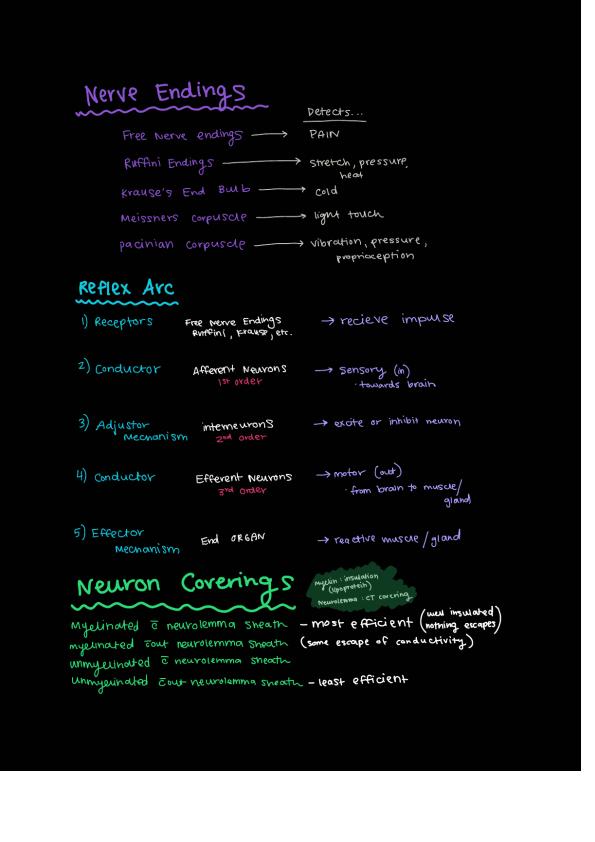 Nerve Endings
Detects...
Free Nerve endings → PAIN
Ruffini Endings → stretch, pressure,
heat
Krause's End Bulb → cold
Meissners corpuscle → light touch
pacinian corpuscle → vibration, pressure,
proprioception
Reflex Arc
1) Receptors Free Nerve Endings → recieve impulse
Ruffini, Krause, etc.
2) Conductor Afferent Neurons → sensory (in)
1st order · towards brain
3) Adjustor interneurons → excite or inhibit neuron
Mechanism 2nd order
4) Conductor Efferent Neurons → motor (out)
3rd order · from brain to muscle/
gland
5) Effector End ORGAN → reactive muscle/gland
Mechanism
Neuron Coverings
Myelin: insulation
(lipoprotein)
Neurolemma: CT covering
Myelinated c̄ neurolemma sheath – most efficient (well insulated
nothing escapes)
myelinated c̄out neurolemma sheath (some escape of conductivity)
unmyelinated c̄ neurolemma sheath
Unmyelinated c̄out neurolemma sheath – least efficient